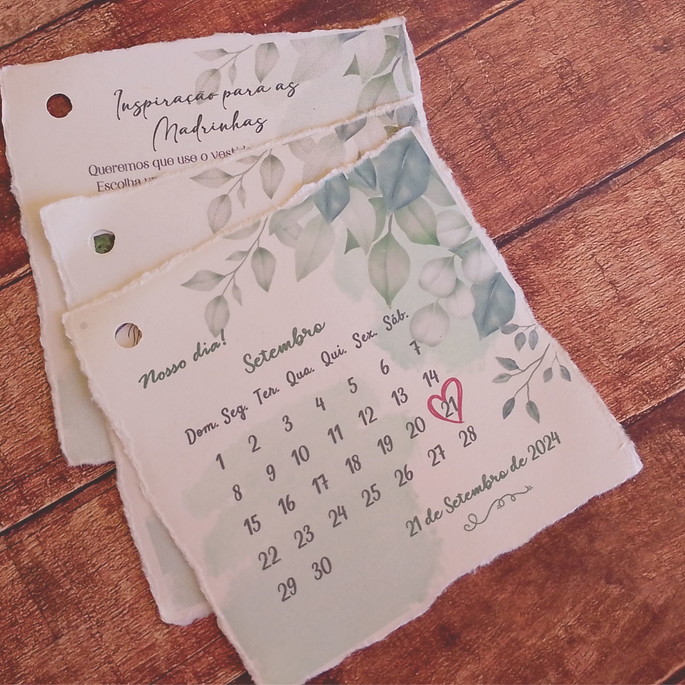 Inspiração para as
Madrinhas
Queremos que use o
Escolha
Nosso dia!
Setembro
Dom. Seg. Ter. Qua. Qui. Sex. Sáb.
1 2 3 4 5 6 7
8 9 10 11 12 13 14
15 16 17 18 19 20 21
22 23 24 25 26 27 28
29 30
21 de Setembro de 2024